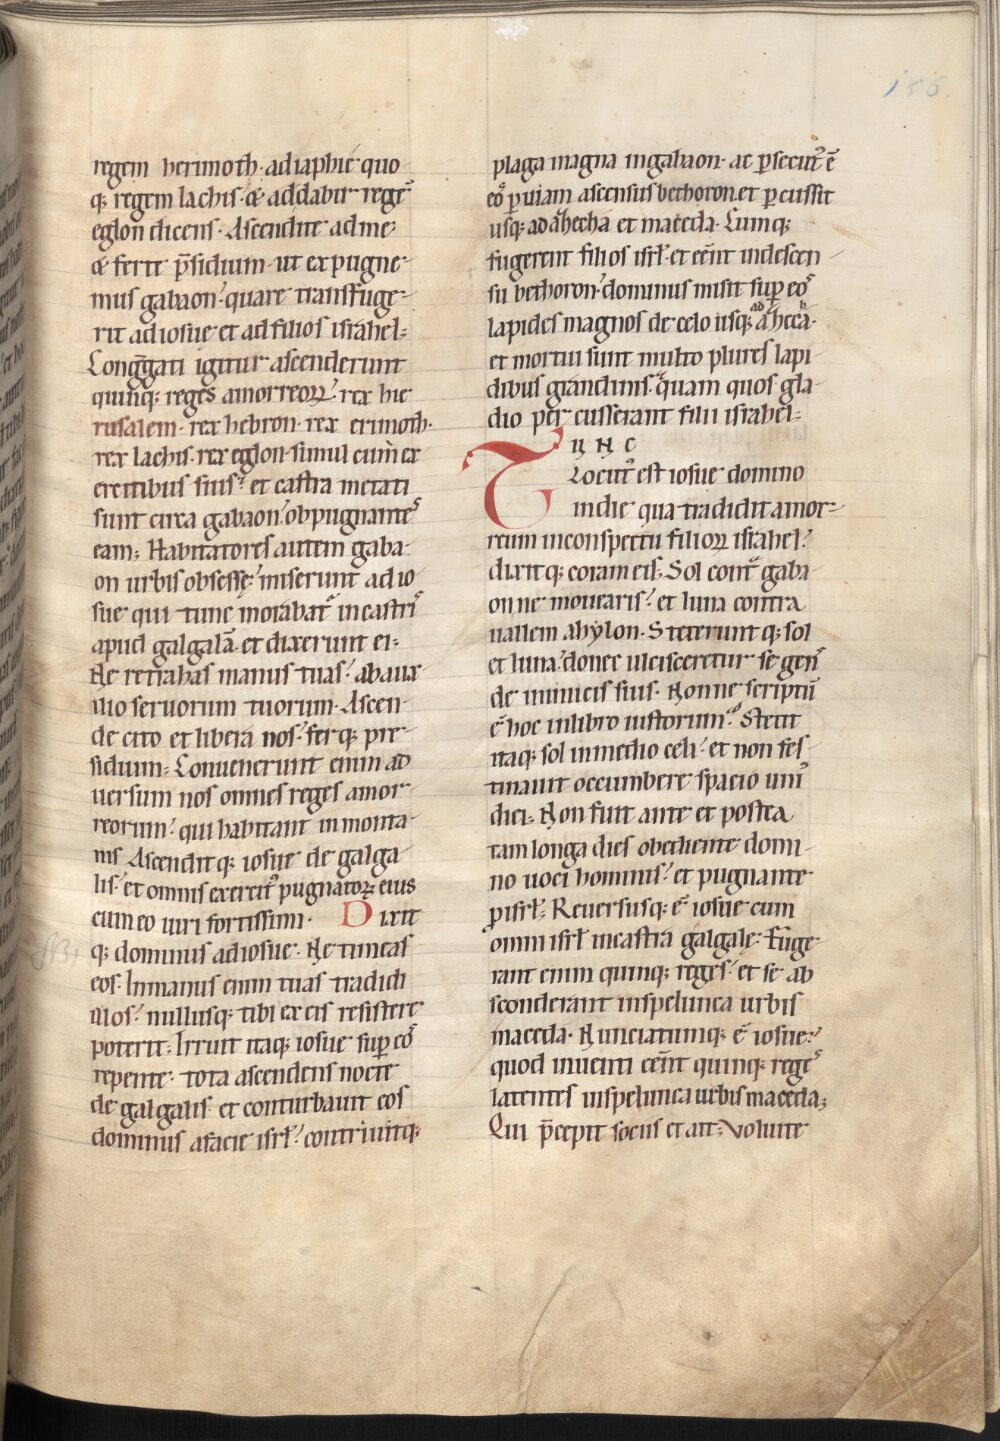 156.
regem herimoth· adiaphie quo
q; regem lachis· & addabir regē
eglon dicens· Ascendite adme·
& ferte p̄sidium· ut expugne
mus gabaon· quare transfuge
rit adiosue et ad filios israhel·
Congḡati igitur ascenderunt
quinq; reges amorreoꝝ· rex hie
rusalem· rex hebron· rex erimoth·
rex lachis· rex eglon· simul cum ex
ercitibus suis· et castra metati
sunt circa gabaon· obpugnantes
eam; Habitatores autem gaba
on urbis obsesse· miserunt ad io
sue qui tunc morabat᷒ in castris
apud galgalā· et dixerunt ei·
Ne retrahas manus tuas· ab aux
ilio seruorum tuorum· Ascen
de cito et libera nos· ferq; pre
sidium· Conuenerunt enim ad
uersum nos omnes reges amor
reorum· qui habitant in monta
nis Ascenditq; iosue de galga
lis· et omnis exercit᷒ pugnatoꝝ eius
cum eo uiri fortissimi· Dixit
q; dominus adiosue· Ne timeas
eos· Inmanus enim tuas tradidi
illos· nullusq; tibi ex eis resistere
poterit· Irruit itaq; iosue sup eos
repente· tota ascendens nocte
de galgalis· et conturbauit eos
dominus afacie isrł· contriuitq;
plaga magna ingabaon· ac ꝑsecut᷒ ē
eos ꝑ uiam ascensus bethoron· et ꝑcussit
usq; ad ahecha et maceda· Cumq;
fugerent filios isrł· et eēnt indescen
su bethoron· dominus misit suꝑ eos
lapides magnos de celo usq; ad ahecha·
et mortui sunt multo plures lapi
dibus grandinis· quam quos gla
dio percusserant filii israhel·
TUNC
Locut᷒ est iosue domino
indie qua tradidit amor
reum inconspectu filioꝝ israhel·
dixitq; coram eis; Sol contra gaba
on ne mouearis· et luna contra
uallem ahylon· Steteruntq; sol
et luna· donec ulcisceretur se gens
de inimicis suis· Nonne scriptū
ē hoc inlibro iustorum· Stetit
itaq; sol inmedio celi· et non fes
tinauit occumbere spacio uni᷒
diei· Non fuit ante et postea
tam longa dies obediente domi
no uoci hominis· et pugnante
ꝓ isrł· Reuersusq; ē iosue cum
omni isrł incastra galgale· Fuge
rant enim quinq; reges· et se ab
sconderant inspelunca urbis
maceda· Nunciatumq; ē iosue·
quod inuenti eēnt quinq; reges
latentes inspelunca urbis maceda;
Qui p̄cepit sociis et ait· Voluite